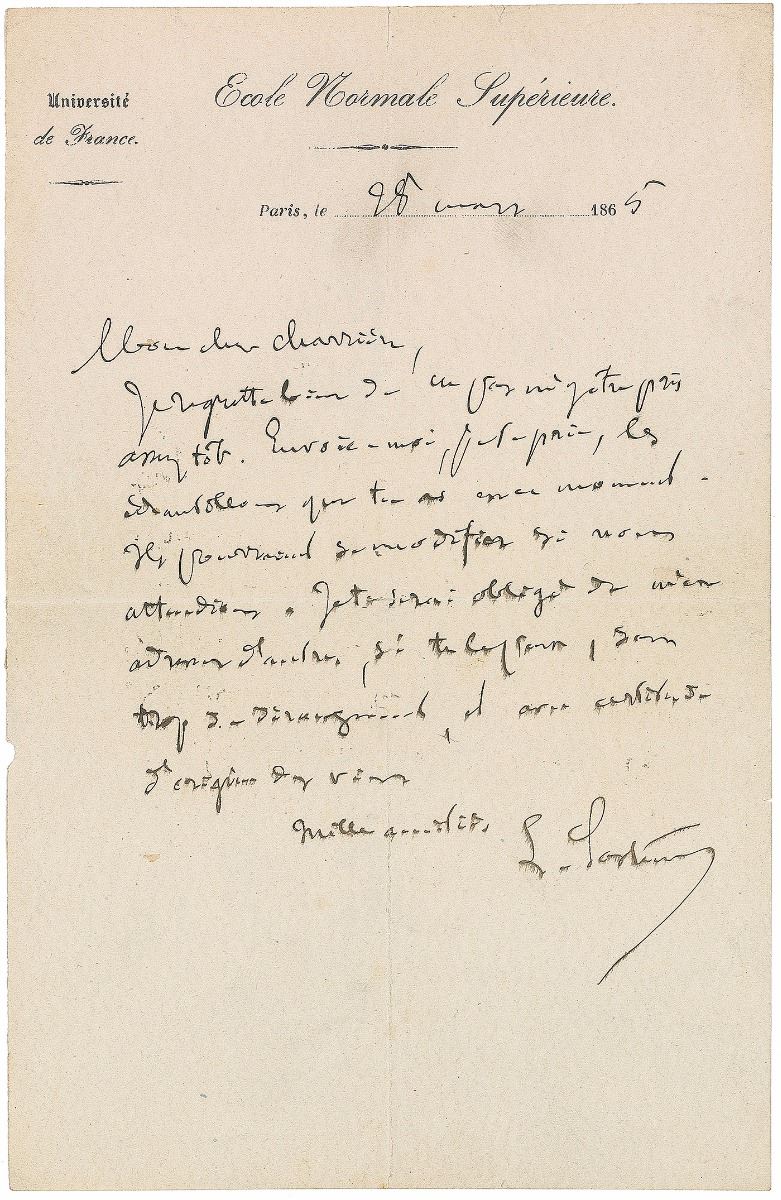 Université
de France.
Ecole Normale Supérieure.
Paris, le 28 mars 1865
Mon cher Charrière,
Je regrette bien de ne pas m'y être pris
assez tôt. Envoie-moi, je te prie, les
échantillons que tu as en ce moment.
Ils pourraient se modifier si nous
attendions. Je te serai obligé de m'en
adresser d'autres, si tu le peux, sans
trop de dérangement, et avec certitude
d'origine des vins
Mille amitiés
L. Pasteur